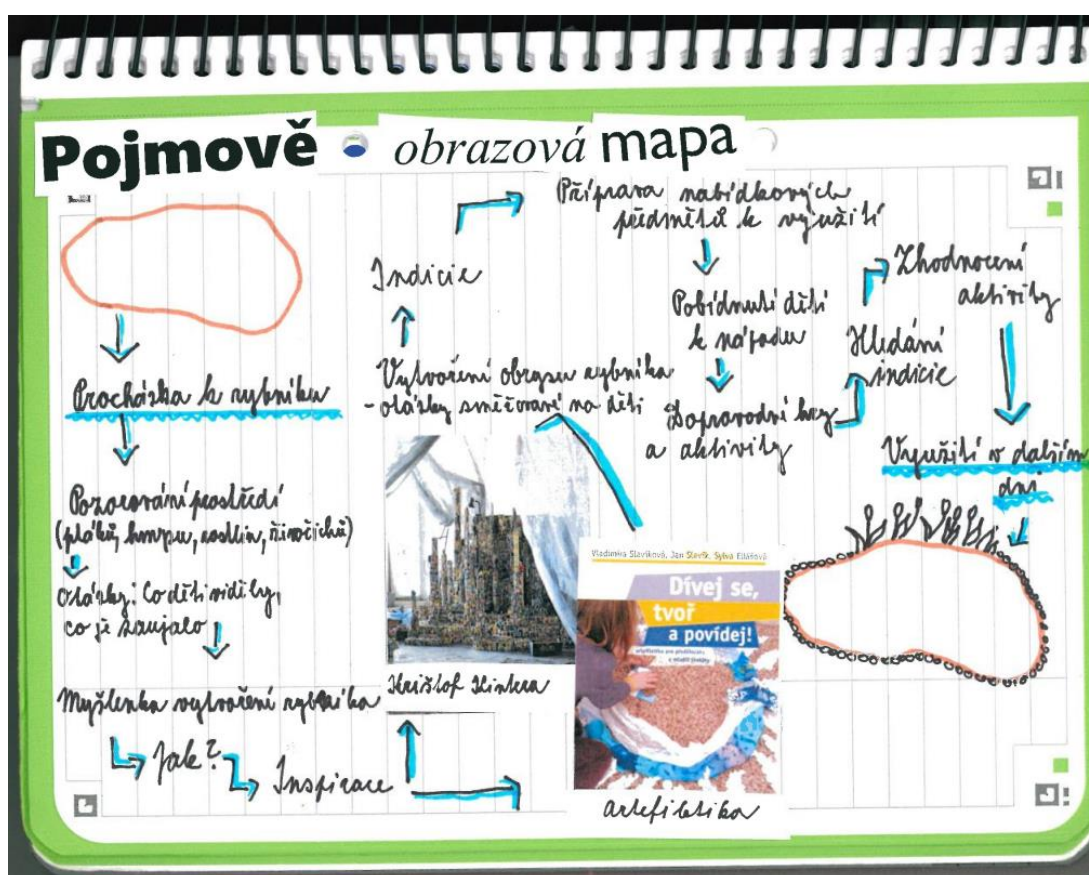 Pojmově obrazová mapa
Procházka k rybníku
Pozorování prostředí
(ptáků, hmyzu, rostlin, živočichů)
Otázky: Co děti viděly,
co je zaujalo
Myšlenka vytvoření rybníka
Jak?
Inspirace
Krištof Kintera
Vladimíra Slavíková, Jan Slavík, Sylva Eliášová
Dívej se,
tvoř
a povídej!
artefiletika
Vytvoření obrysu rybníka
- otázky směřované na děti
Indicie
Příprava nabídkových
předmětů k využití
Pobídnutí dětí
k nápadu
Doprovodné hry
a aktivity
Hledání
indicie
Zhodnocení
aktivity
Využití v dalším
dni